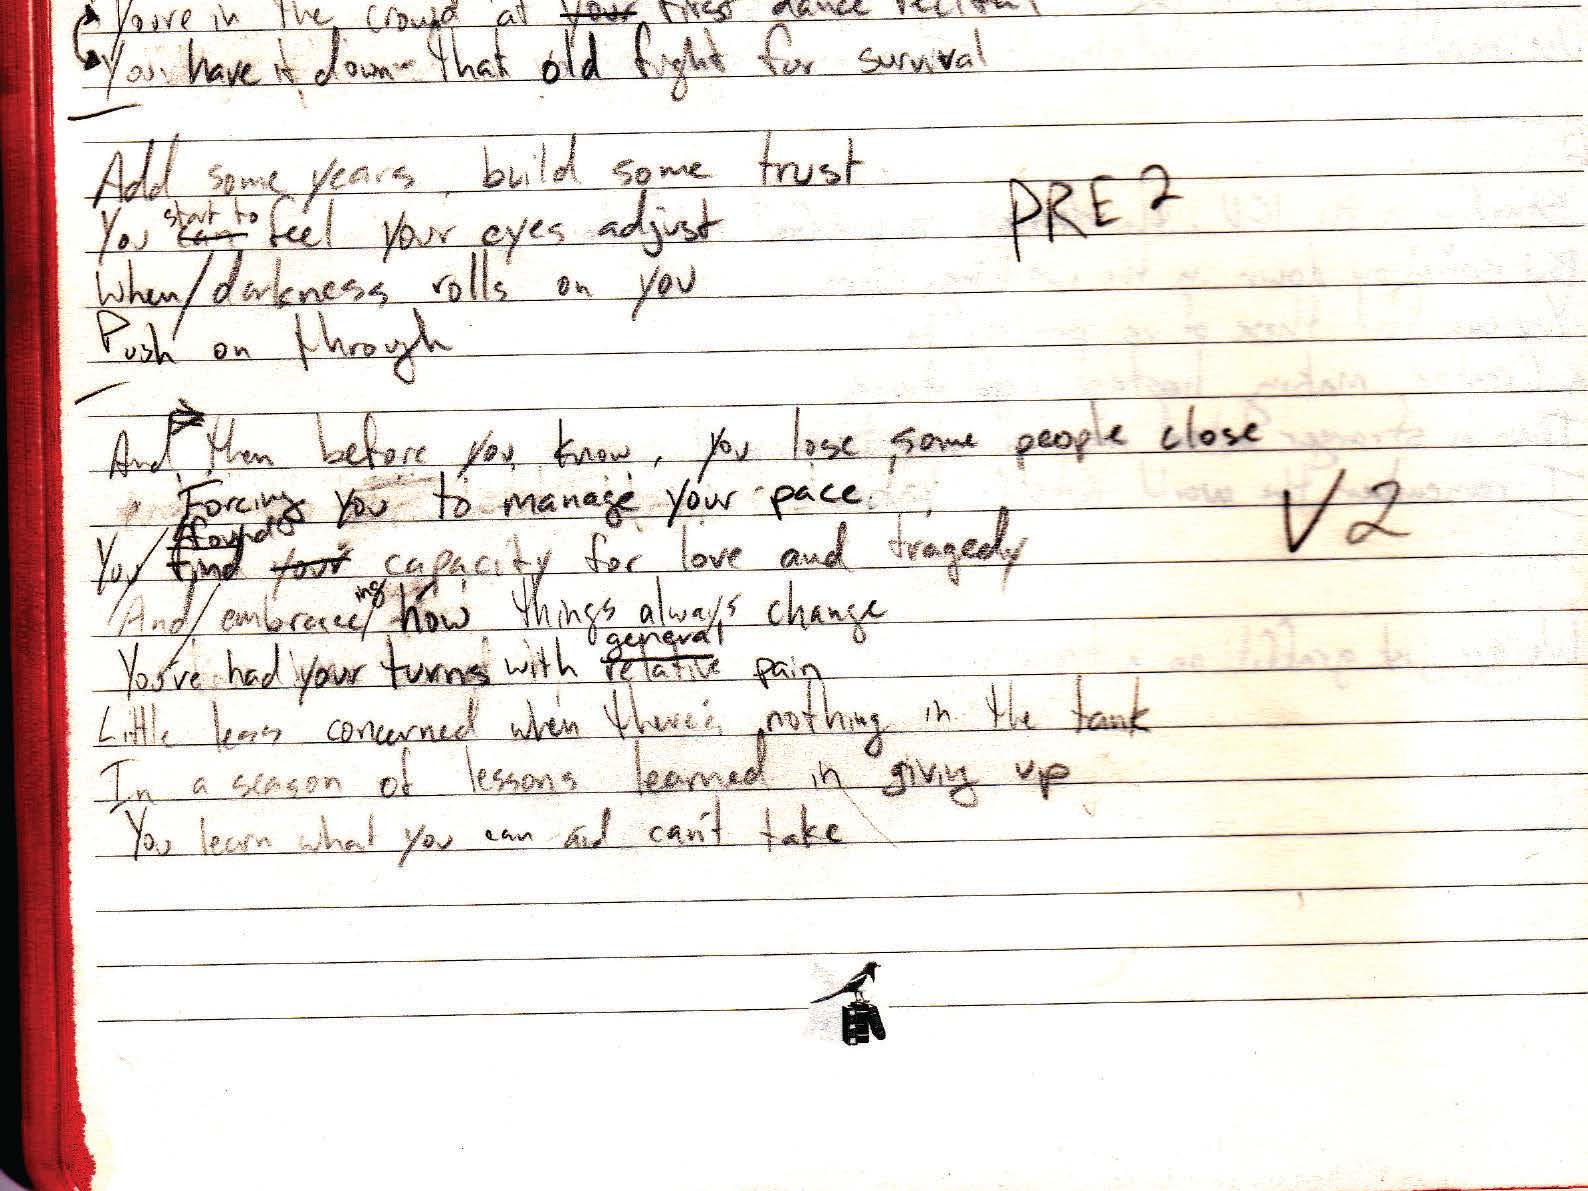 You're in the crowd at your first dance recital
You have it down that old fight for survival
Add some years, build some trust
PRE 2
start to
You can feel your eyes adjust
When darkness rolls on you
Push on through
And then before you know, you lose some people close
Forcing you to manage your pace
V2
found
You find your capacity for love and tragedy
And embraceing how things always change
general
You've had your turns with relative pain
Little less concerned when there's nothing in the tank
In a season of lessons learned in giving up
You learn what you can and can't take